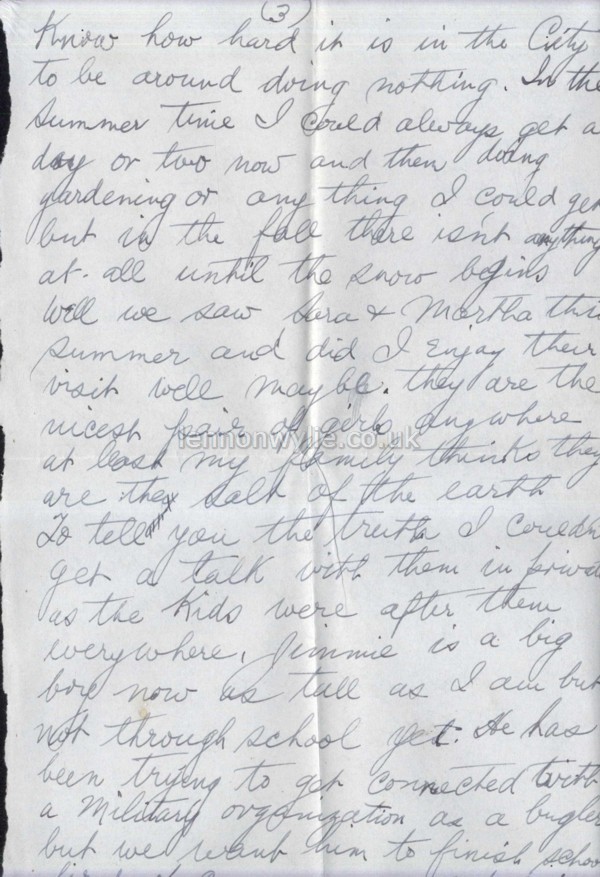 (3)
Know how hard it is in the City
to be around doing nothing. In the
Summer time I Could always get a
day or two now and then doing
gardening or any thing I could get
but in the fall there isn't anything
at all until the snow begins
Well we saw Sara & Martha thi
summer and did I Enjoy their
visit well maybe. they are the
nicest pair of girls anywhere
lennonwylie.co.uk
at least my family thinks they
are the salt of the earth
To tell you the truth I couldn
get a talk with them in priva
as the Kids were after them
everywhere. Jimmie is a big
boy now as tall as I am but
not through school yet. He has
been trying to get connected with
a Military organization as a bugler
but we want him to finish schoo